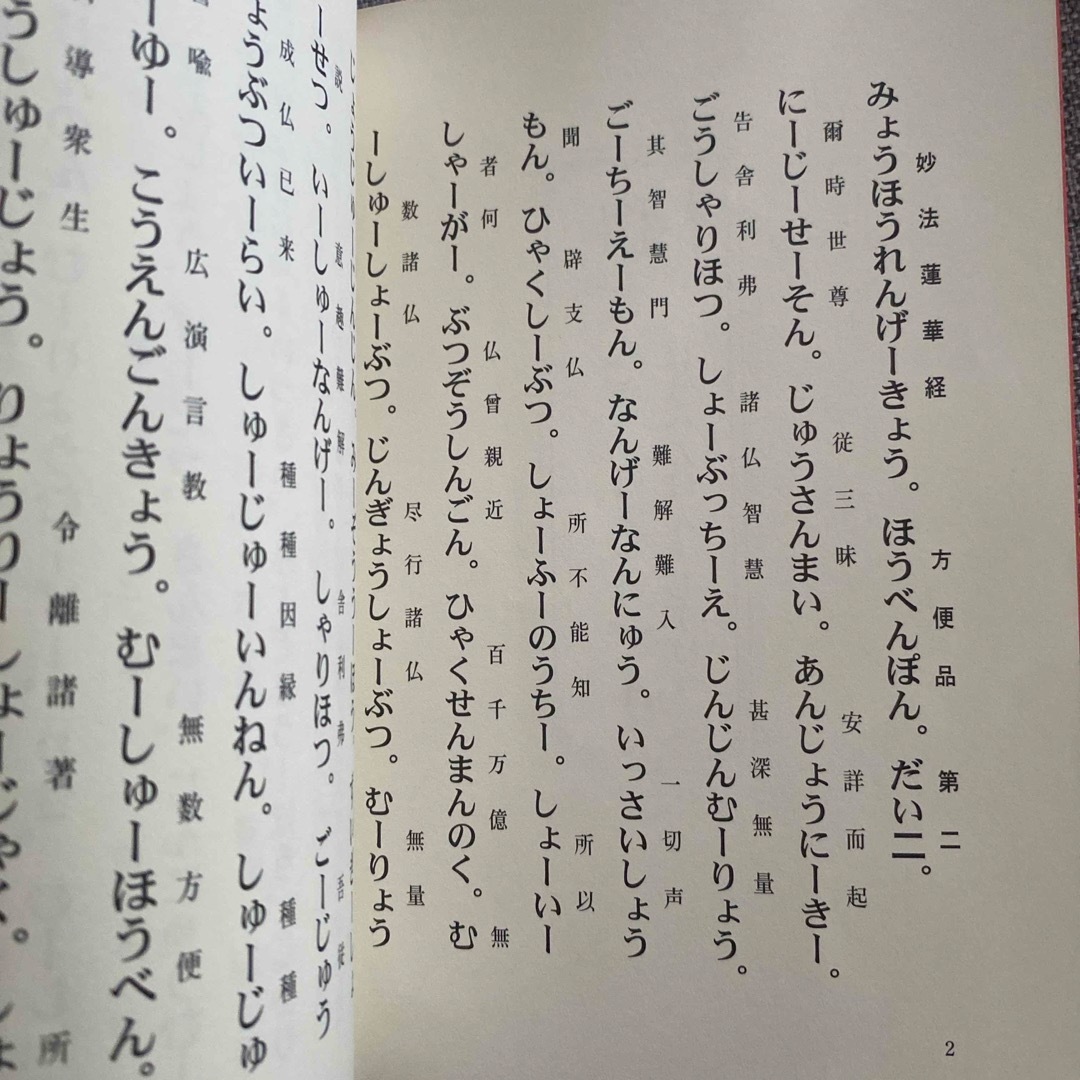 妙法蓮華経 方便品 第二
みょうほうれんげーきょう。ほうべんぽん。だい二。
爾時世尊 従三昧 安詳而起
にーじーせーそん。じゅうさんまい。あんじょうにーきー。
告舎利弗 諸仏智慧 甚深無量
ごうしゃりほつ。しょーぶっちーえ。じんじんむーりょう。
其智慧門 難解難入 一切声
ごーちーえーもん。なんげーなんにゅう。いっさいしょう
聞 辟支仏 所不能知 所以
もん。ひゃくしーぶつ。しょーふーのうちー。しょーいー
者何 仏曾親近 百千万億 無
しゃーがー。ぶつぞうしんごん。ひゃくせんまんのく。む
数諸仏 尽行諸仏 無量
ーしゅーしょーぶつ。じんぎょうしょーぶつ。むーりょう
2
説 意趣難解 舎利弗 吾従
ーせつ。いーしゅーなんげー。しゃりほつ。ごーじゅう
成仏已来 種種因縁 種種
ょうぶついーらい。しゅーじゅーいんねん。しゅーじゅ
喩 広演言教 無数方便
ーゆー。こうえんごんきょう。むーしゅーほうべん。
導衆生 令離諸著 所
うしゅーじょう。りょうりーしょーじゃく。しょ